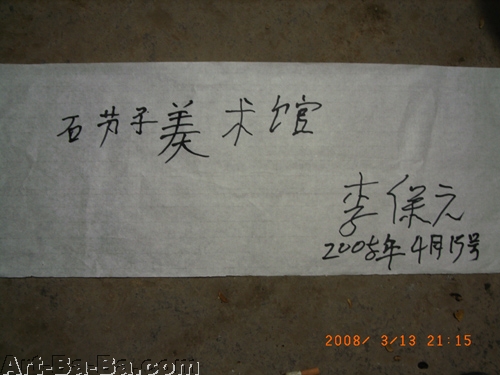 石节子美术馆
李保元
2008年4月15号
2008/ 3/13 21:15
Art-Ba-Ba.com